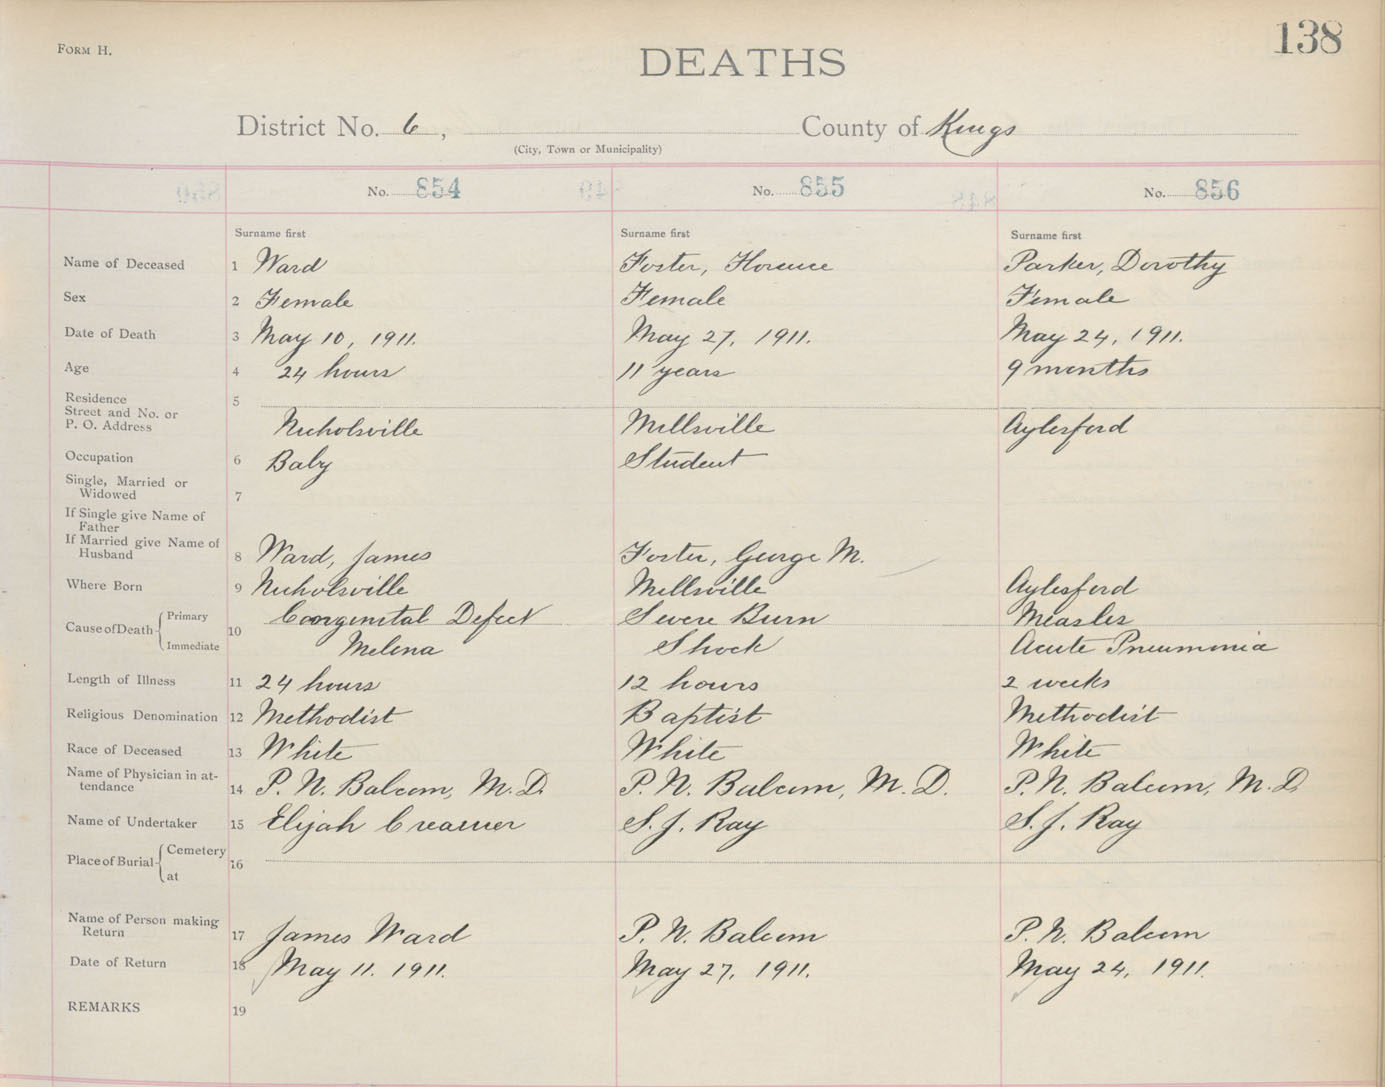 FORM H.
138
DEATHS
District No. 6, County of Kings
(City, Town or Municipality)
No. 854 No. 855 No. 856
Surname first Surname first Surname first
Name of Deceased 1 Ward Foster, Florence Parker, Dorothy
Sex 2 Female Female Female
Date of Death 3 May 10, 1911. May 27, 1911. May 24, 1911.
Age 4 24 hours 11 years 9 months
Residence 5
Street and No. or
P. O. Address Nicholsville Millsville Aylesford
Occupation 6 Baby Student
Single, Married or
Widowed 7
If Single give Name of
Father
If Married give Name of
Husband 8 Ward, James Foster, George M.
Where Born 9 Nicholsville Millsville Aylesford
Cause of Death Primary 10 Congenital Defect Severe Burn Measles
Immediate Melena Shock Acute Pneumonia
Length of Illness 11 24 hours 12 hours 2 weeks
Religious Denomination 12 Methodist Baptist Methodist
Race of Deceased 13 White White White
Name of Physician in at-
tendance 14 P. N. Balcom, M.D. P. N. Balcom, M.D. P. N. Balcom, M.D.
Name of Undertaker 15 Elijah Creamer S. J. Ray S. J. Ray
Place of Burial Cemetery 16
at
Name of Person making
Return 17 James Ward P. N. Balcom P. N. Balcom
Date of Return 18 May 11. 1911. May 27, 1911. May 24, 1911.
REMARKS 19